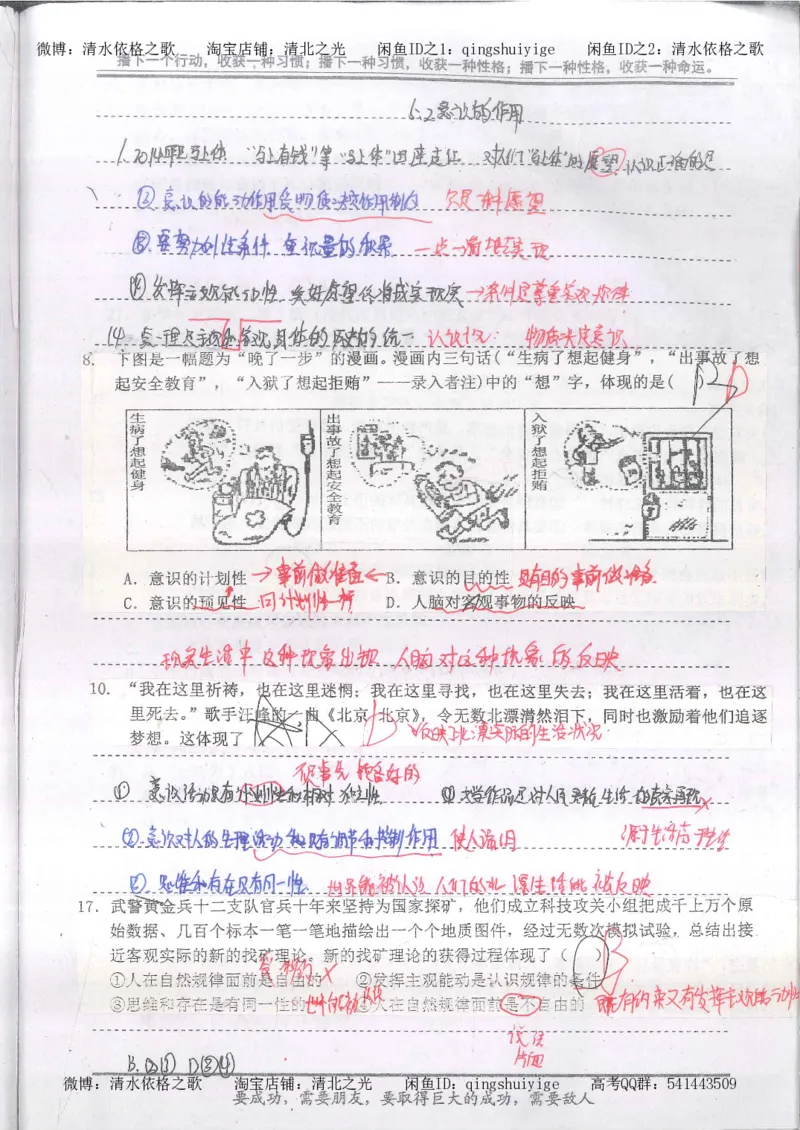 微博：清水依格之歌 淘宝店铺：清北之光 闲鱼ID之1：qingshuiyige 闲鱼ID之2：清水依格之歌
播下一个行动，收获一种习惯；播下一种习惯，收获一种性格；播下一种性格，收获一种命运。
6.2意识的作用
1. 2014 "马上有钱"等"马上体" 走红 对人们"马上体"的展望 认识正确的是
②意识的能动作用受物质 作用制约 只是 愿望
③要努力创造条件 重视量的积累 一点一滴 实现
④发挥主观能动性 美好愿望 将成实现实 → 尊重客观规律
14. 的统一 认识论：物质决定意识
8. 下图是一幅题为“晚了一步”的漫画。漫画内三句话(“生病了想起健身”，“出事故了想
起安全教育”，“入狱了想起拒贿”——录入者注)中的“想”字，体现的是( D
生病了想起健身
出事故了想起安全教育
入狱了想起拒贿
A．意识的计划性 → 事前做准备 ← B．意识的目的性 事前做准备
C．意识的预见性 同计划性一样 D．人脑对客观事物的反映
现实生活中这种现象出现 人脑对这种现象的反映
10. “我在这里祈祷，也在这里迷惘；我在这里寻找，也在这里失去；我在这里活着，也在这
里死去。”歌手汪峰的一曲《北京 北京》，令无数北漂潸然泪下，同时也激励着他们追逐
梦想。这体现了 反映北漂实际的生活状况
① 意识活动 性和相对独立性 文学作品是对人民 生活的 再现 ×
②意识对人的生理活动 具有调节和控制作用 使人泪目 源于生活高于生活
思维和存在具有同一性 世界能被认识 人们的 生活 被反映
17. 武警黄金兵十二支队官兵十年来坚持为国家探矿，他们成立科技攻关小组把成千上万个原
始数据、几百个标本一笔一笔地描绘出一个个地质图件，经过无数次模拟试验，总结出接
近客观实际的新的找矿理论。新的找矿理论的获得过程体现了（ ）
①人在自然规律面前是自由的 × ②发挥主观能动是认识规律的条件
③思维和存在是有同一性的 ④人在自然规律面前是不自由的
说法
片面
B.②③ D③④
微博：清水依格之歌 淘宝店铺：清北之光 闲鱼ID：qingshuiyige 高考QQ群：541443509
要成功，需要朋友，要取得巨大的成功，需要敌人